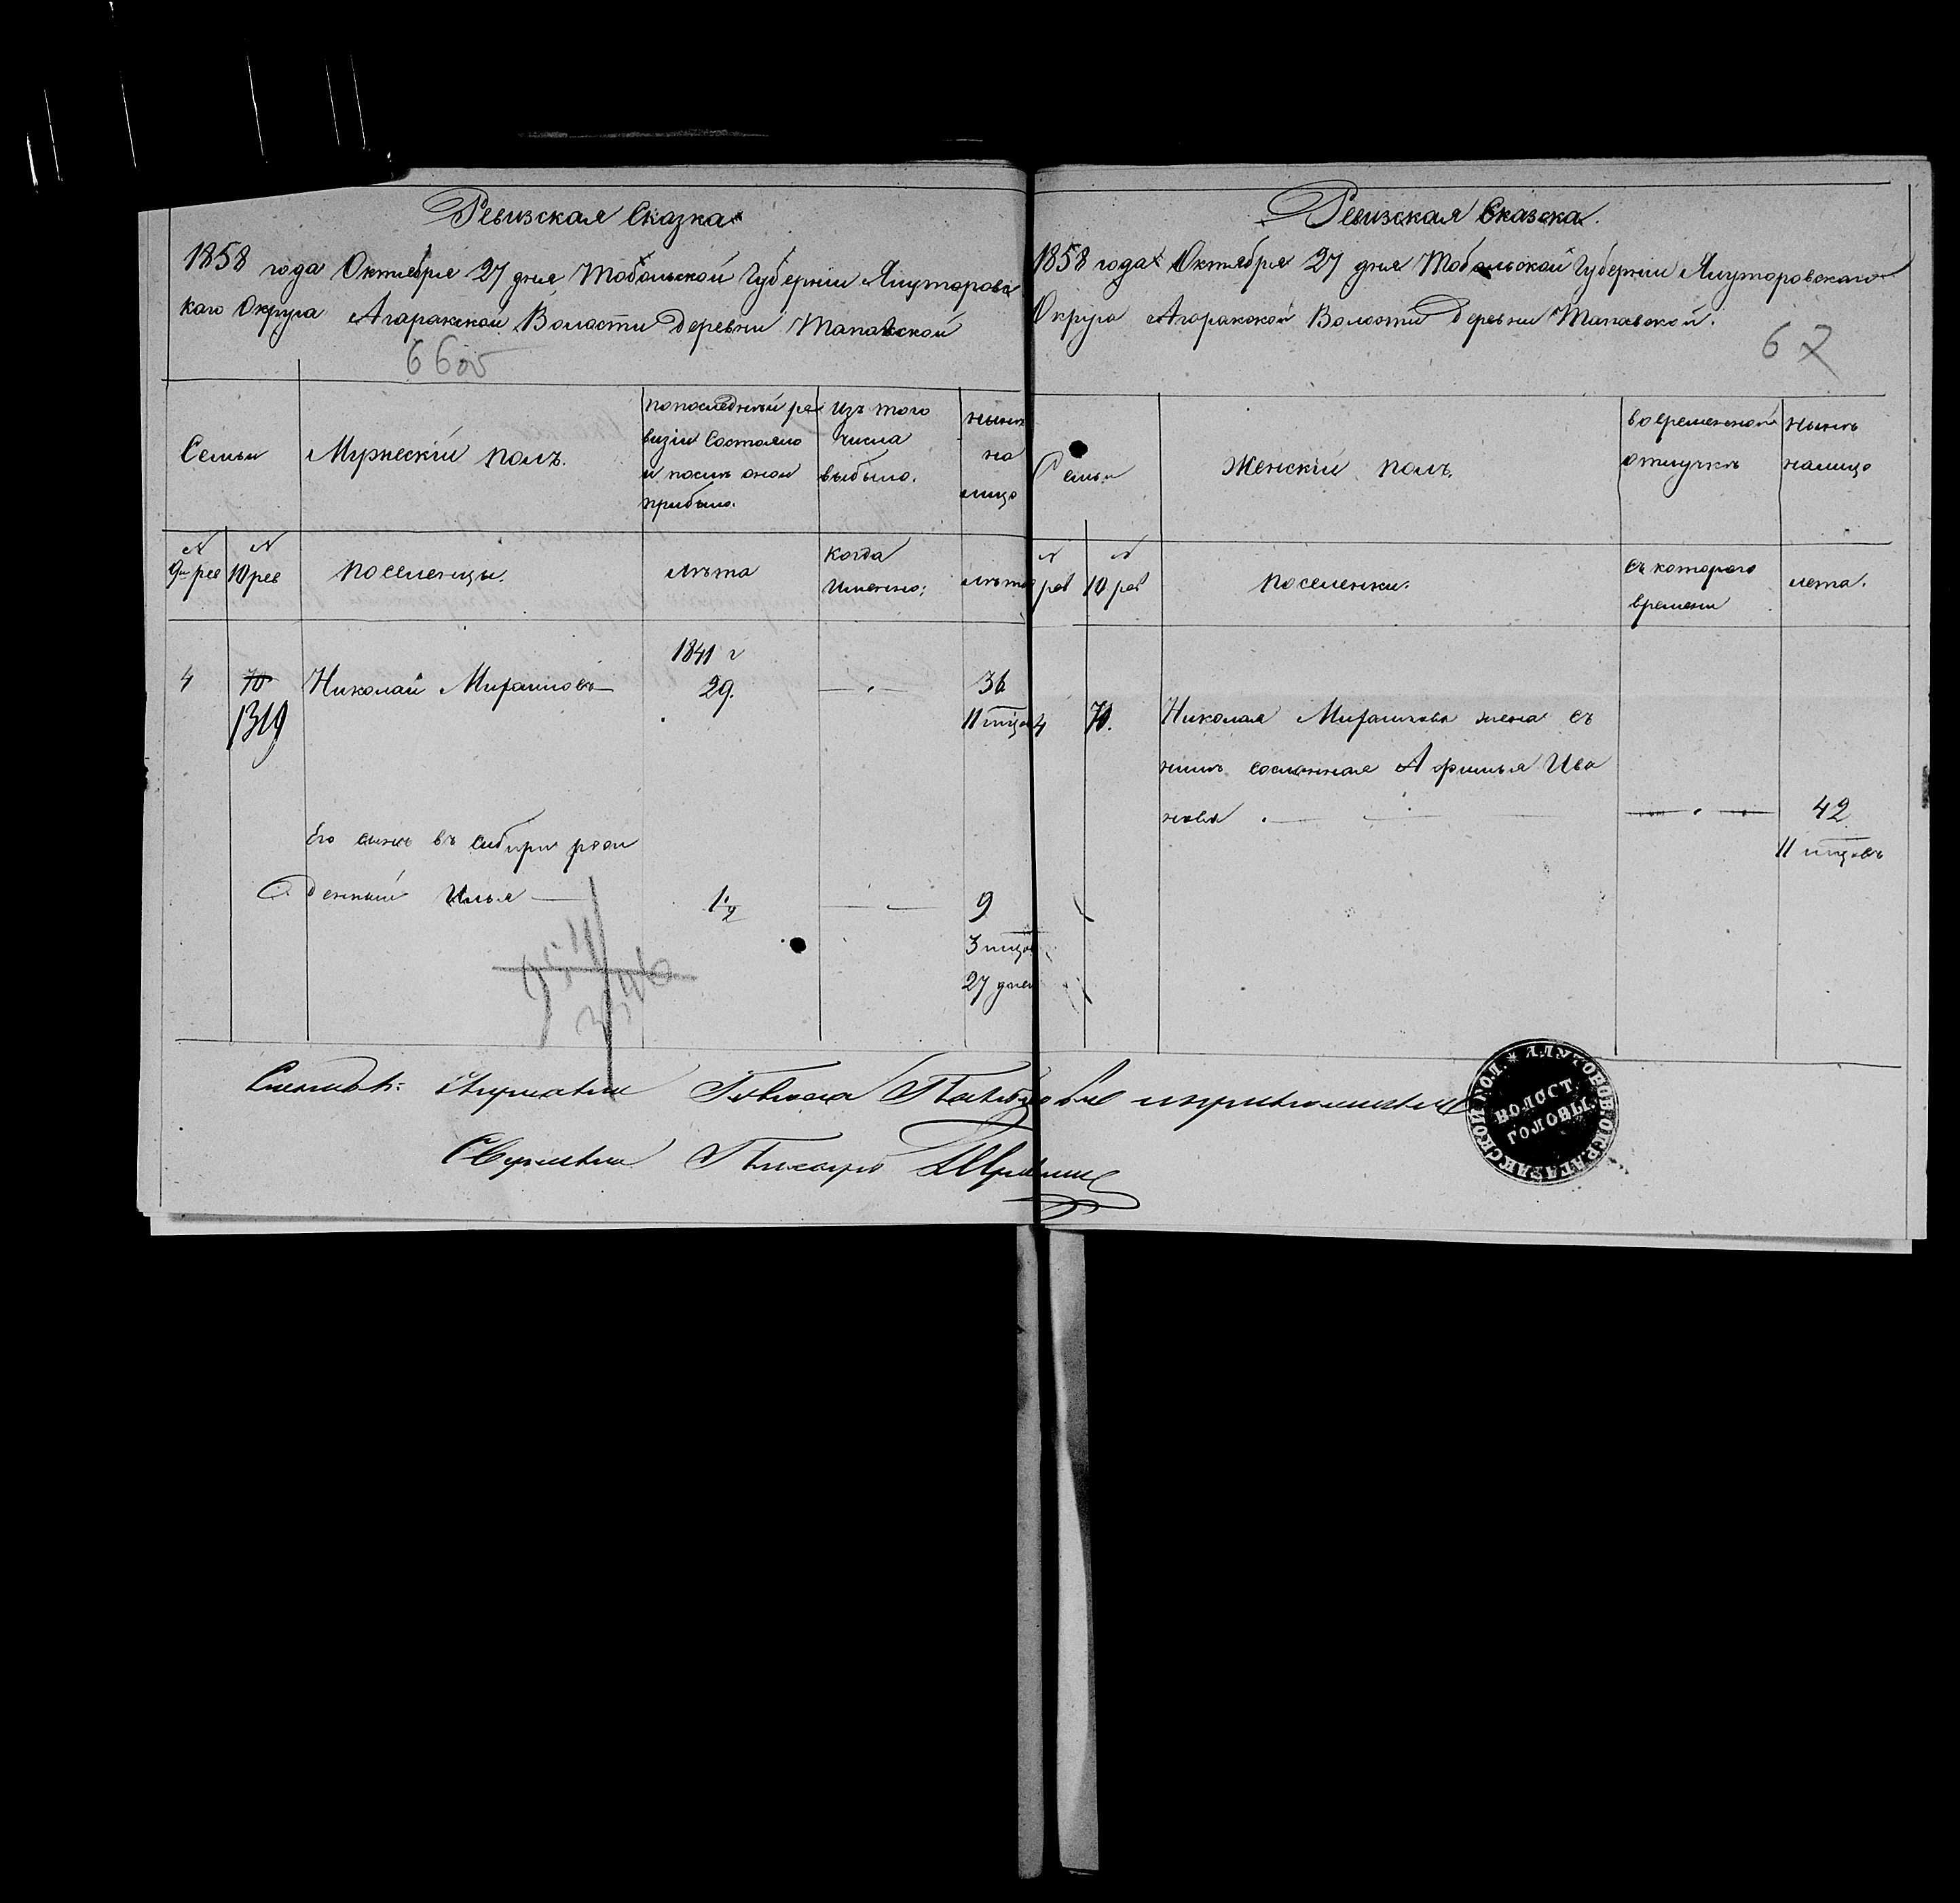 Ревизская Сказка
1858 года Октября 27 дня Тобольской Губернии Ялуторовс
каго Округа Агаракской Волости Деревни Тапавской
66 об
Семьи
Мужескій полъ.
по последней ре
визіи Состояло
и после оной
прибыло.
Изъ того
числа
выбыло.
ныне
на
лицо
№
9й рев
№
10 рев
Поселенцы.
лѣта
Когда
Именно:
лѣта
4
70
1319
Николай
1841 г
29.
36
11 мцов
Его сынъ въ Сибири рож
денный Илья
1 1/2
9
3 мцов
27 дней
Ревизская Сказка.
1858 года Октября 27 дня Тобольской Губерніи Ялуторовскаго
Округа Агаракской Волости Деревни Тапавской.
67
Семьи
Женскій полъ.
во временной
отлучкѣ
нынѣ
налицо
№
рев
№
10 рев
Поселенки.
съ котораго
времени
лета.
4
70.
Николая жена съ
нимъ сосланная Афимья Ива
нова
42
11 мцовъ
Писарь
ВОЛОСТ.
ГОЛОВЫ.